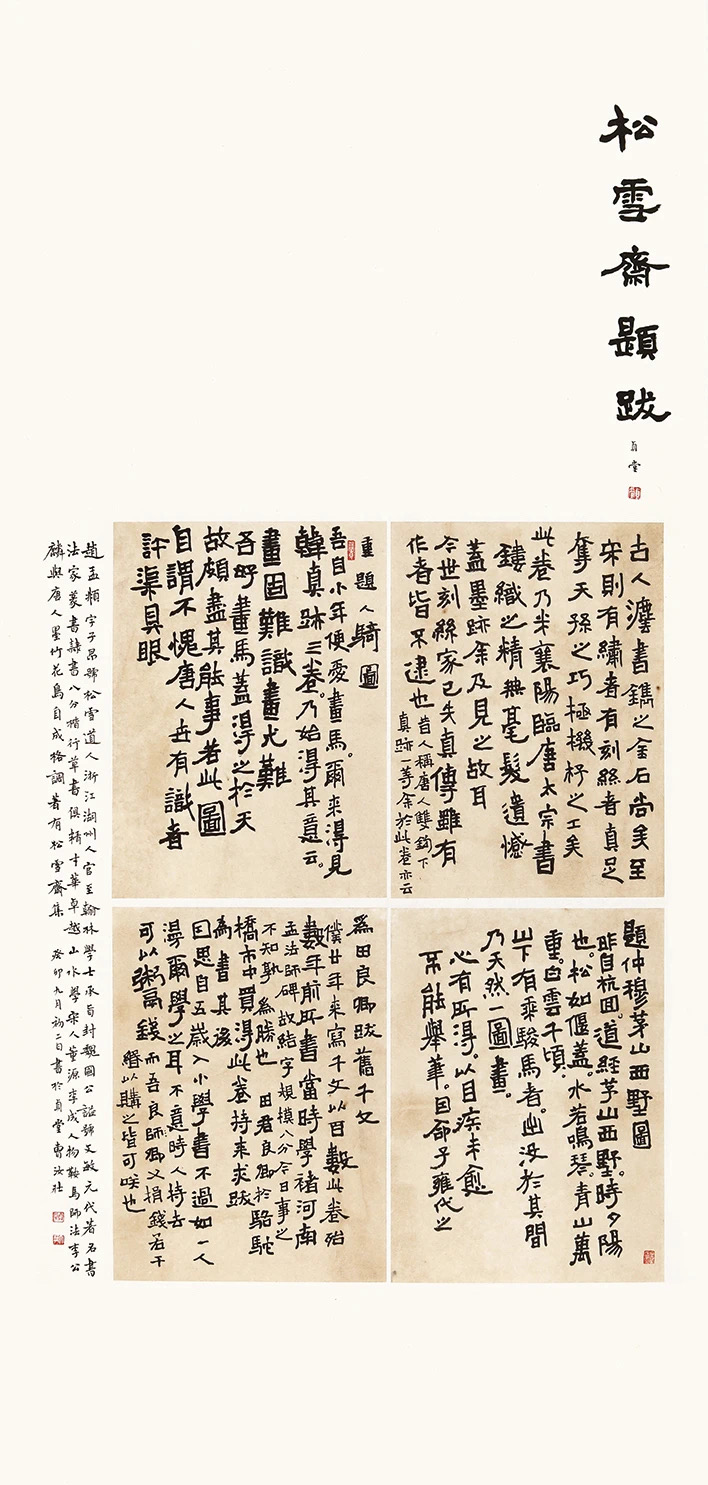 松雪齋題跋
貞堂
古人灋書鐫之金石尚矣至
宋則有繡者有刻絲者真足
奪天孫之巧極機杼之工矣
此卷乃米襄陽臨唐太宗書
鏤織之精無毫髮遺憾
蓋墨跡余及見之故耳
今世刻絲家已失真傳雖有
作者皆不逮也昔人稱唐人雙鉤下
真跡一等余於此卷亦云
重題人騎圖
吾自小年便愛畫馬。爾來得見
韓真跡三卷。乃始得其意云。
畫固難識畫尤難
吾好畫馬蓋得之於天
故頗盡其能事若此圖
自謂不愧唐人世有識者
許渠具眼
題仲穆茅山西墅圖
昨自杭回。道經茅山西墅。時夕陽
也。松如偃蓋。水若鳴琴。青山萬
重。白雲千頃。
山下有乘駿馬者。出沒於其間
乃天然一圖畫。
心有所得。以目疾未愈
不能舉筆。因命子雍代之
為田良卿跋舊千文
僕廿年來寫千文以百數此卷殆
數年前所書當時學褚河南
孟法師碑故結字規模八分今日事之
不知孰為勝也田君良卿於駱駝
橋市中買得此卷持來求跋
為書其後
因思自五歲入小學書不過如一人
漫爾學之耳不意時人持去
可以粥錢而吾良師卿又捐錢若干
緡以購之皆可咲也
趙孟頫字子昂號松雪道人浙江湖州人官至翰林學士承旨封魏國公謚號文敏元代著名書
法家篆書隸書八分楷行草書俱精才華卓越山水學宋人董源李成人物鞍馬師法李公
麟與唐人墨竹花鳥自成格調著有松雪齋集癸卯九月初二日書於貞堂曹汝壯